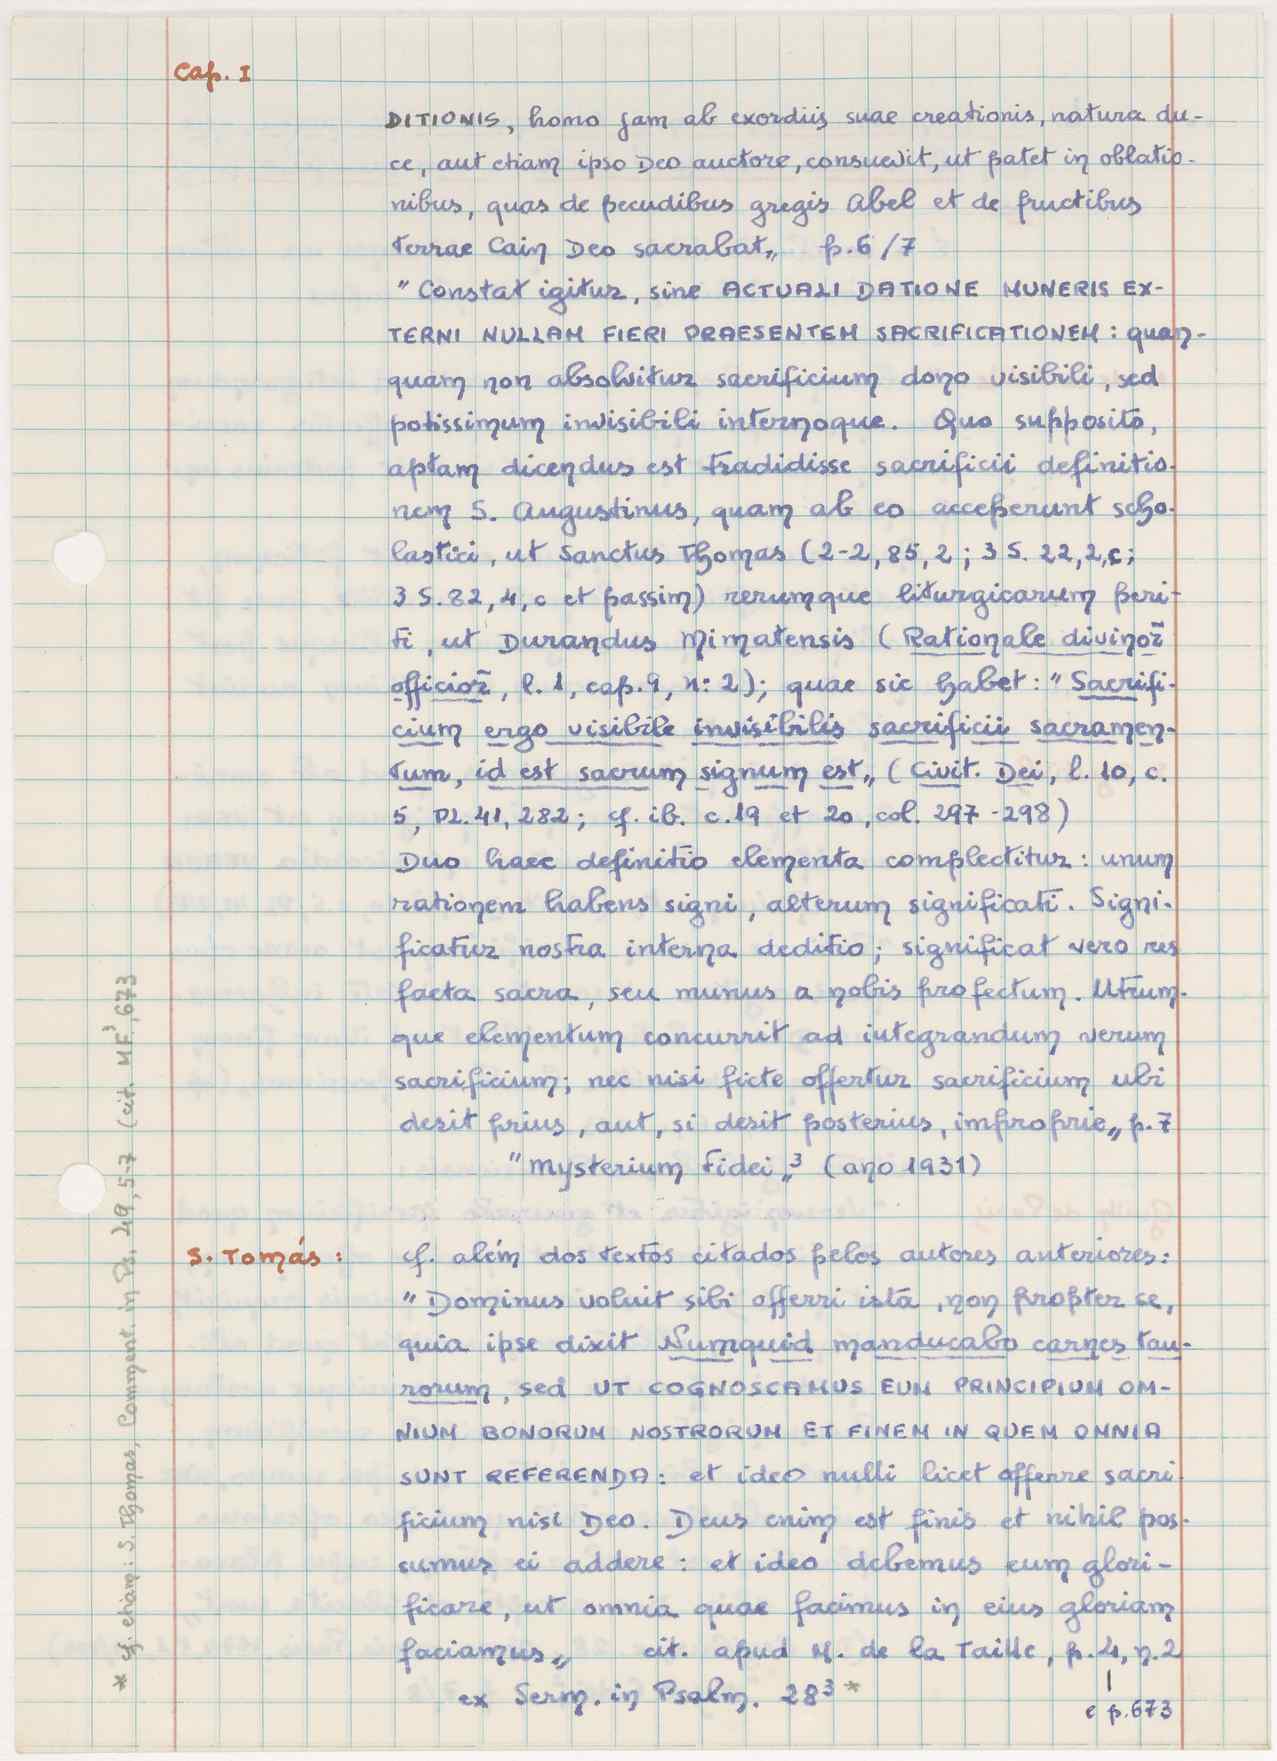 Cap. I
DITIONIS, homo jam ab exordiis suae creationis, natura du-
ce, aut etiam ipso Deo auctore, consuevit, ut patet in oblatio-
nibus, quas de pecudibus gregis Abel et de fructibus
terrae Cain Deo sacrabat„ p. 6/7
"Constat igitur, sine ACTUALI DATIONE MUNERIS EX-
TERNI NULLAM FIERI PRAESENTEM SACRIFICATIONEM: quan-
quam non absolvitur sacrificium dono visibili, sed
potissimum invisibili internoque. Quo supposito,
aptam dicendus est tradidisse sacrificii definitio-
nem S. Augustinus, quam ab eo acceperunt scho-
lastici, ut Sanctus Thomas (2-2, 85, 2; 3 S. 22, 2, c;
3 S. 82, 4, c et passim) rerumque liturgicarum peri-
ti, ut Durandus Mimatensis (Rationale divinor̃
officior̃, l. 1, cap. 9, n: 2); quae sic habet: "Sacrifi-
cium ergo visibile invisibilis sacrificii sacramen-
tum, id est sacrum signum est„ (Civit. Dei, l. 10, c.
5, PL. 41, 282; cf. ib. c. 19 et 20, col. 297-298)
Duo haec definitio elementa complectitur: unum
rationem habens signi, alterum significati. Signi-
ficatur nostra interna deditio; significat vero res
facta sacra, seu munus a nobis profectum. Utrum-
que elementum concurrit ad integrandum verum
sacrificium; nec nisi ficte offertur sacrificium ubi
desit prius, aut, si desit posterius, improprie„ p. 7
"Mysterium Fidei„³ (ano 1931)
S. Tomás:
cf. além dos textos citados pelos autores anteriores:
"Dominus voluit sibi offerri ista, non propter se,
quia ipse dixit Numquid manducabo carnes tau-
rorum, sed UT COGNOSCAMUS EUM PRINCIPIUM OM-
NIUM BONORUM NOSTRORUM ET FINEM IN QUEM OMNIA
SUNT REFERENDA: et ideo nulli licet offerre sacri
ficium nisi Deo. Deus enim est finis et nihil pos-
sumus ei addere: et ideo debemus eum glori-
ficare, ut omnia quae facimus in eius gloriam
faciamus„ cit. apud M. de la Taille, p. 4, n. 2
ex Serm. in Psalm. 28³ *
e p. 673
* cf. etiam: S. Thomas, Comment. in Ps. 49, 5-7 (cit. MF³, 673